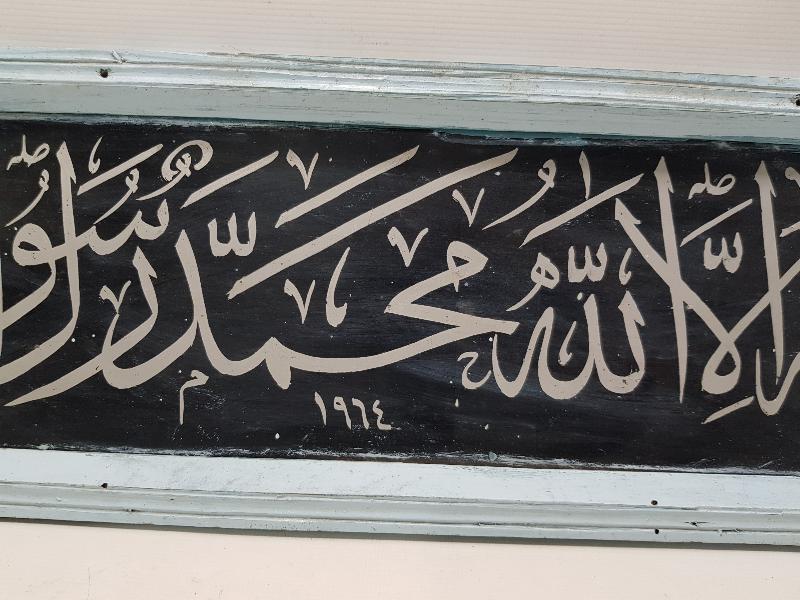 إلا الله محمد رسو
١٩٦٤ م